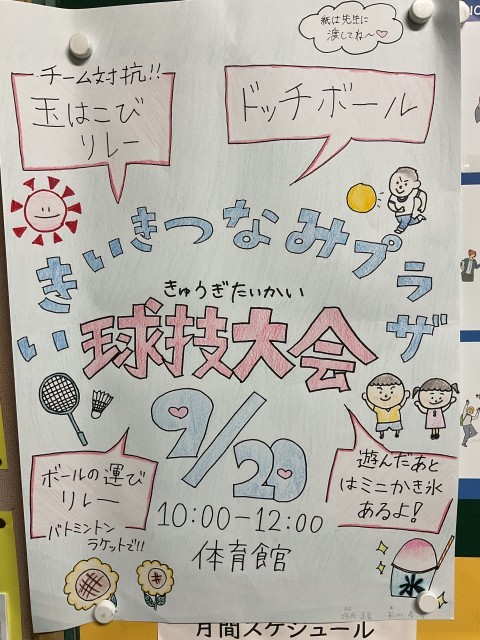 紙は先生に
渡してね〜♡
チーム対抗!!
玉はこび
リレー
ドッチボール
いきいきつなみプラザ
きゅうぎたいかい
球技大会
9/20
10:00-12:00
体育館
ボールの運び
リレー
バトミントン
ラケットで!!
遊んだあと
はミニかき氷
あるよ!
氷
月間スケジュール